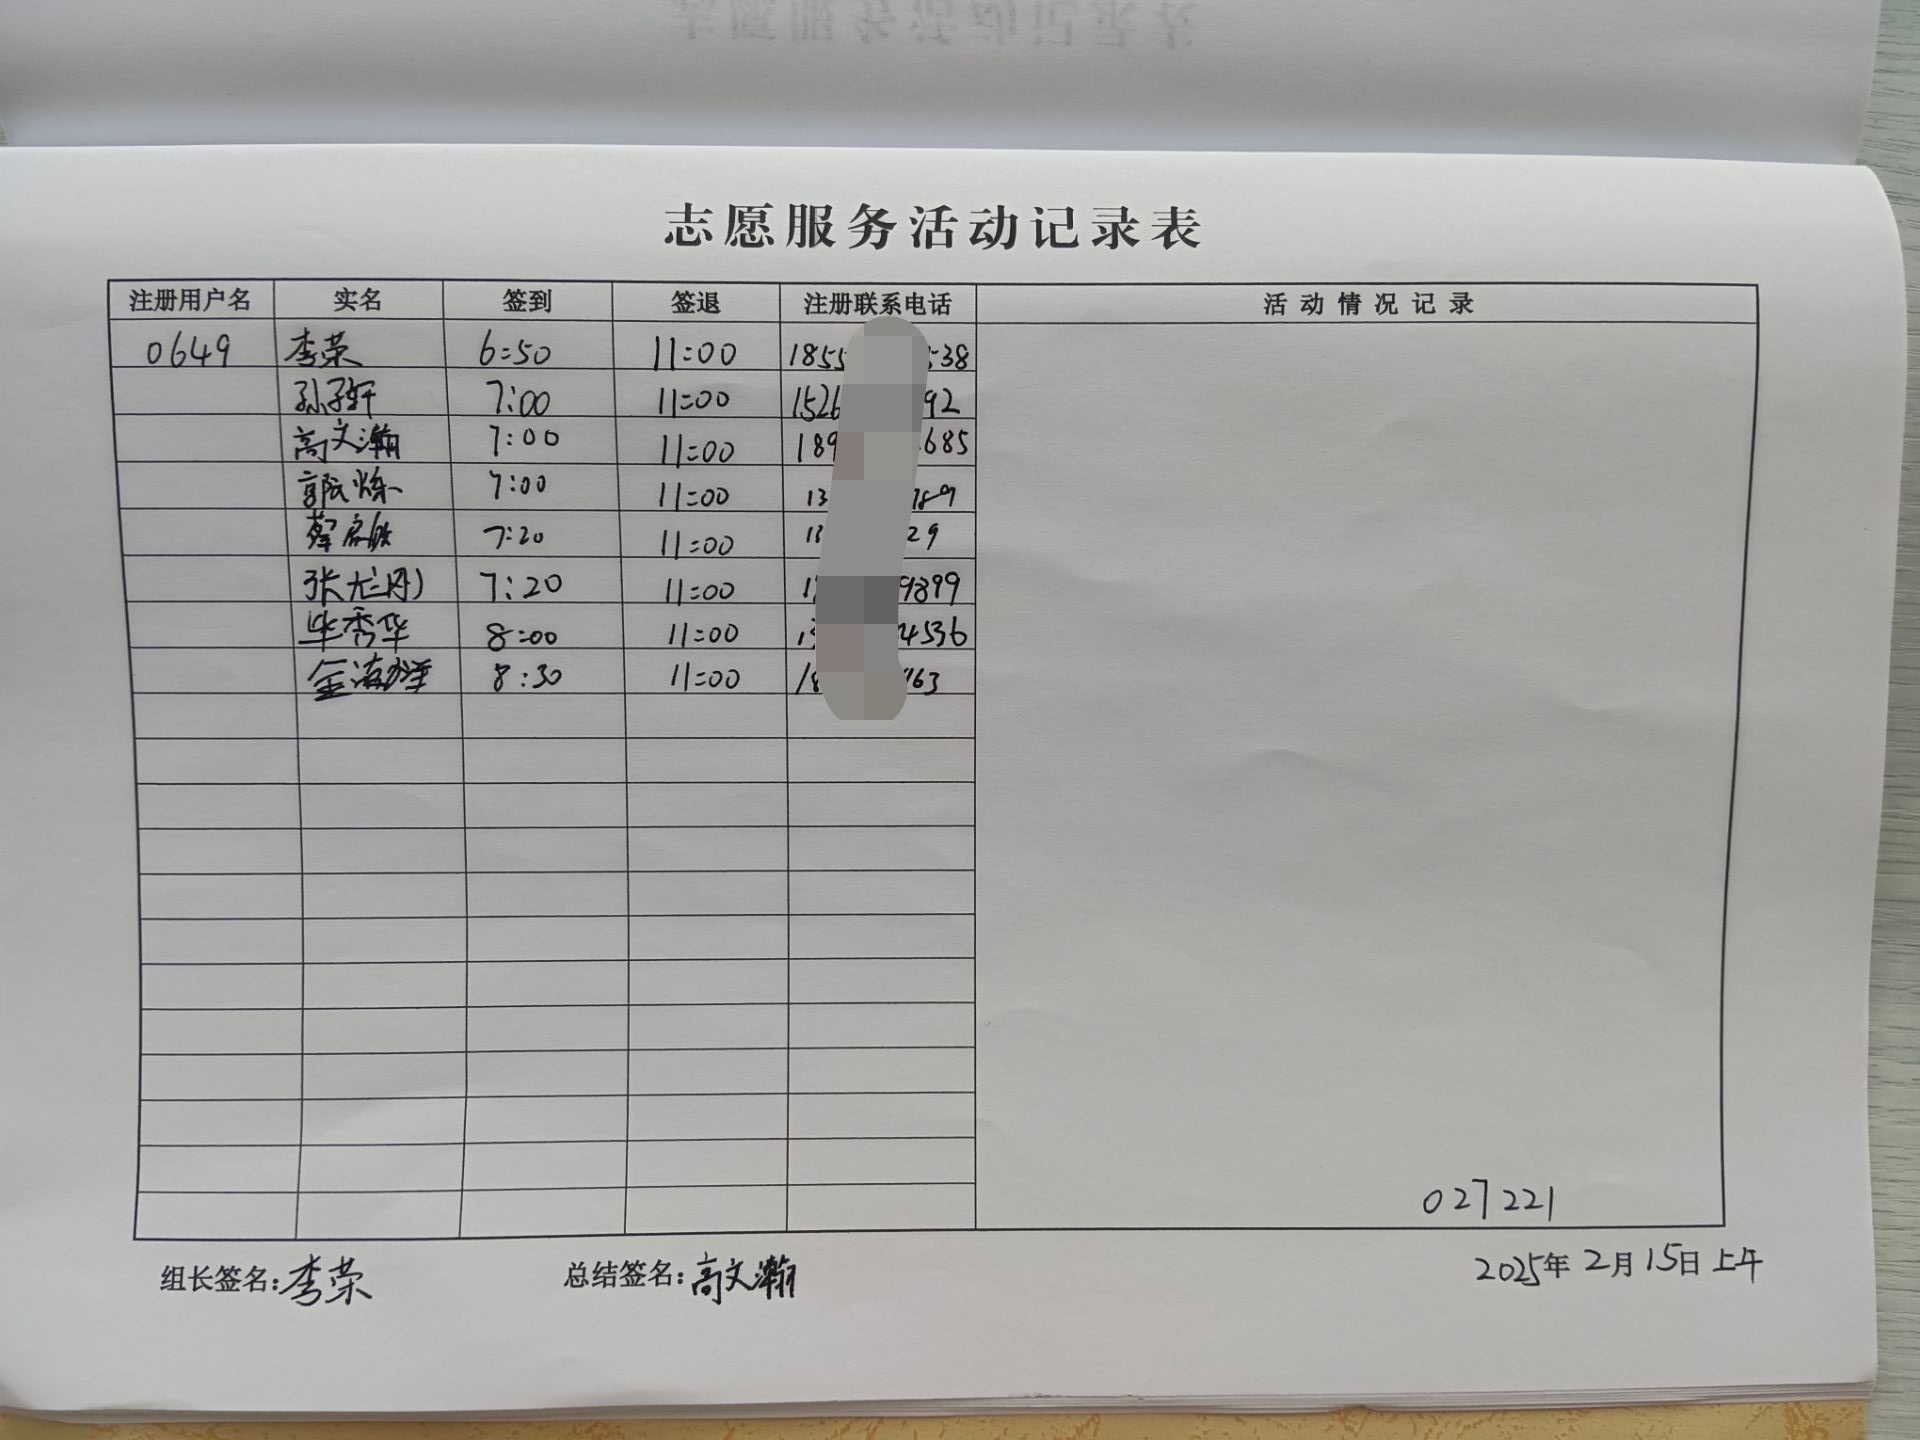 志愿服务活动记录表
注册用户名 实名 签到 签退 注册联系电话 活动情况记录
0649 李荣 6:50 11:00 1855 538
孙子轩 7:00 11:00 1526 92
高文瀚 7:00 11:00 189 685
7:00 11:00 13 789
7:20 11:00 13 29
张龙丹 7:20 11:00 1 9899
毕秀华 8:00 11:00 13 4536
8:30 11:00 18 163
027221
组长签名:李荣 总结签名:高文瀚 2025年2月15日上午